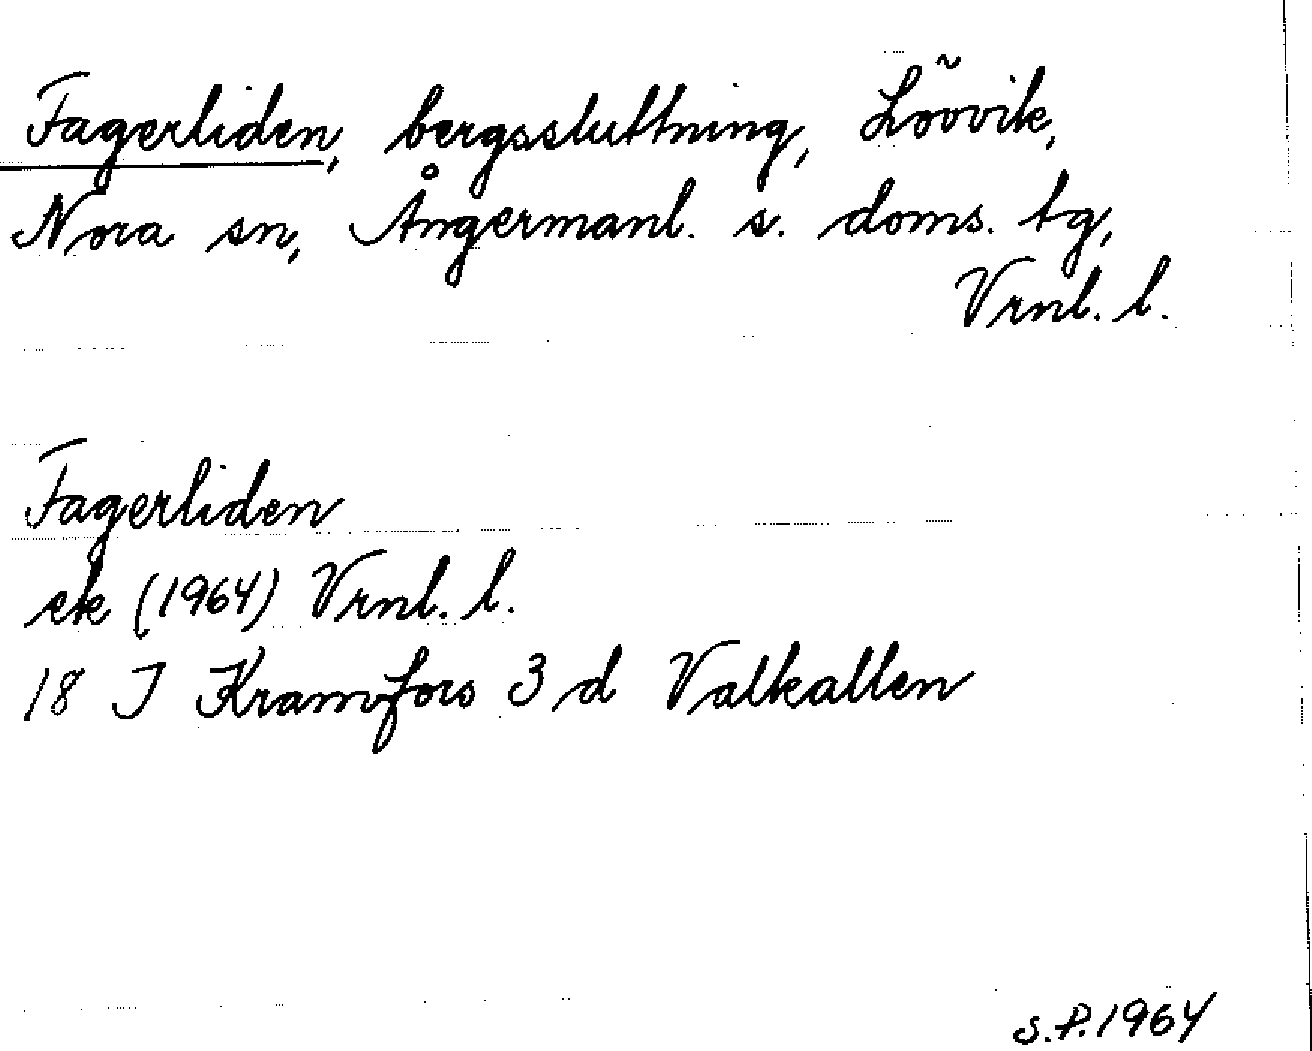 Fagerliden, bergssluttning, Lövvik,
Nora sn, Ångermanl. s. doms. tg,
Vrnl. l.
Fagerliden
ek (1964) Vrnl. l.
18 J Kramfors 3 d Valkallen
S.P. 1964